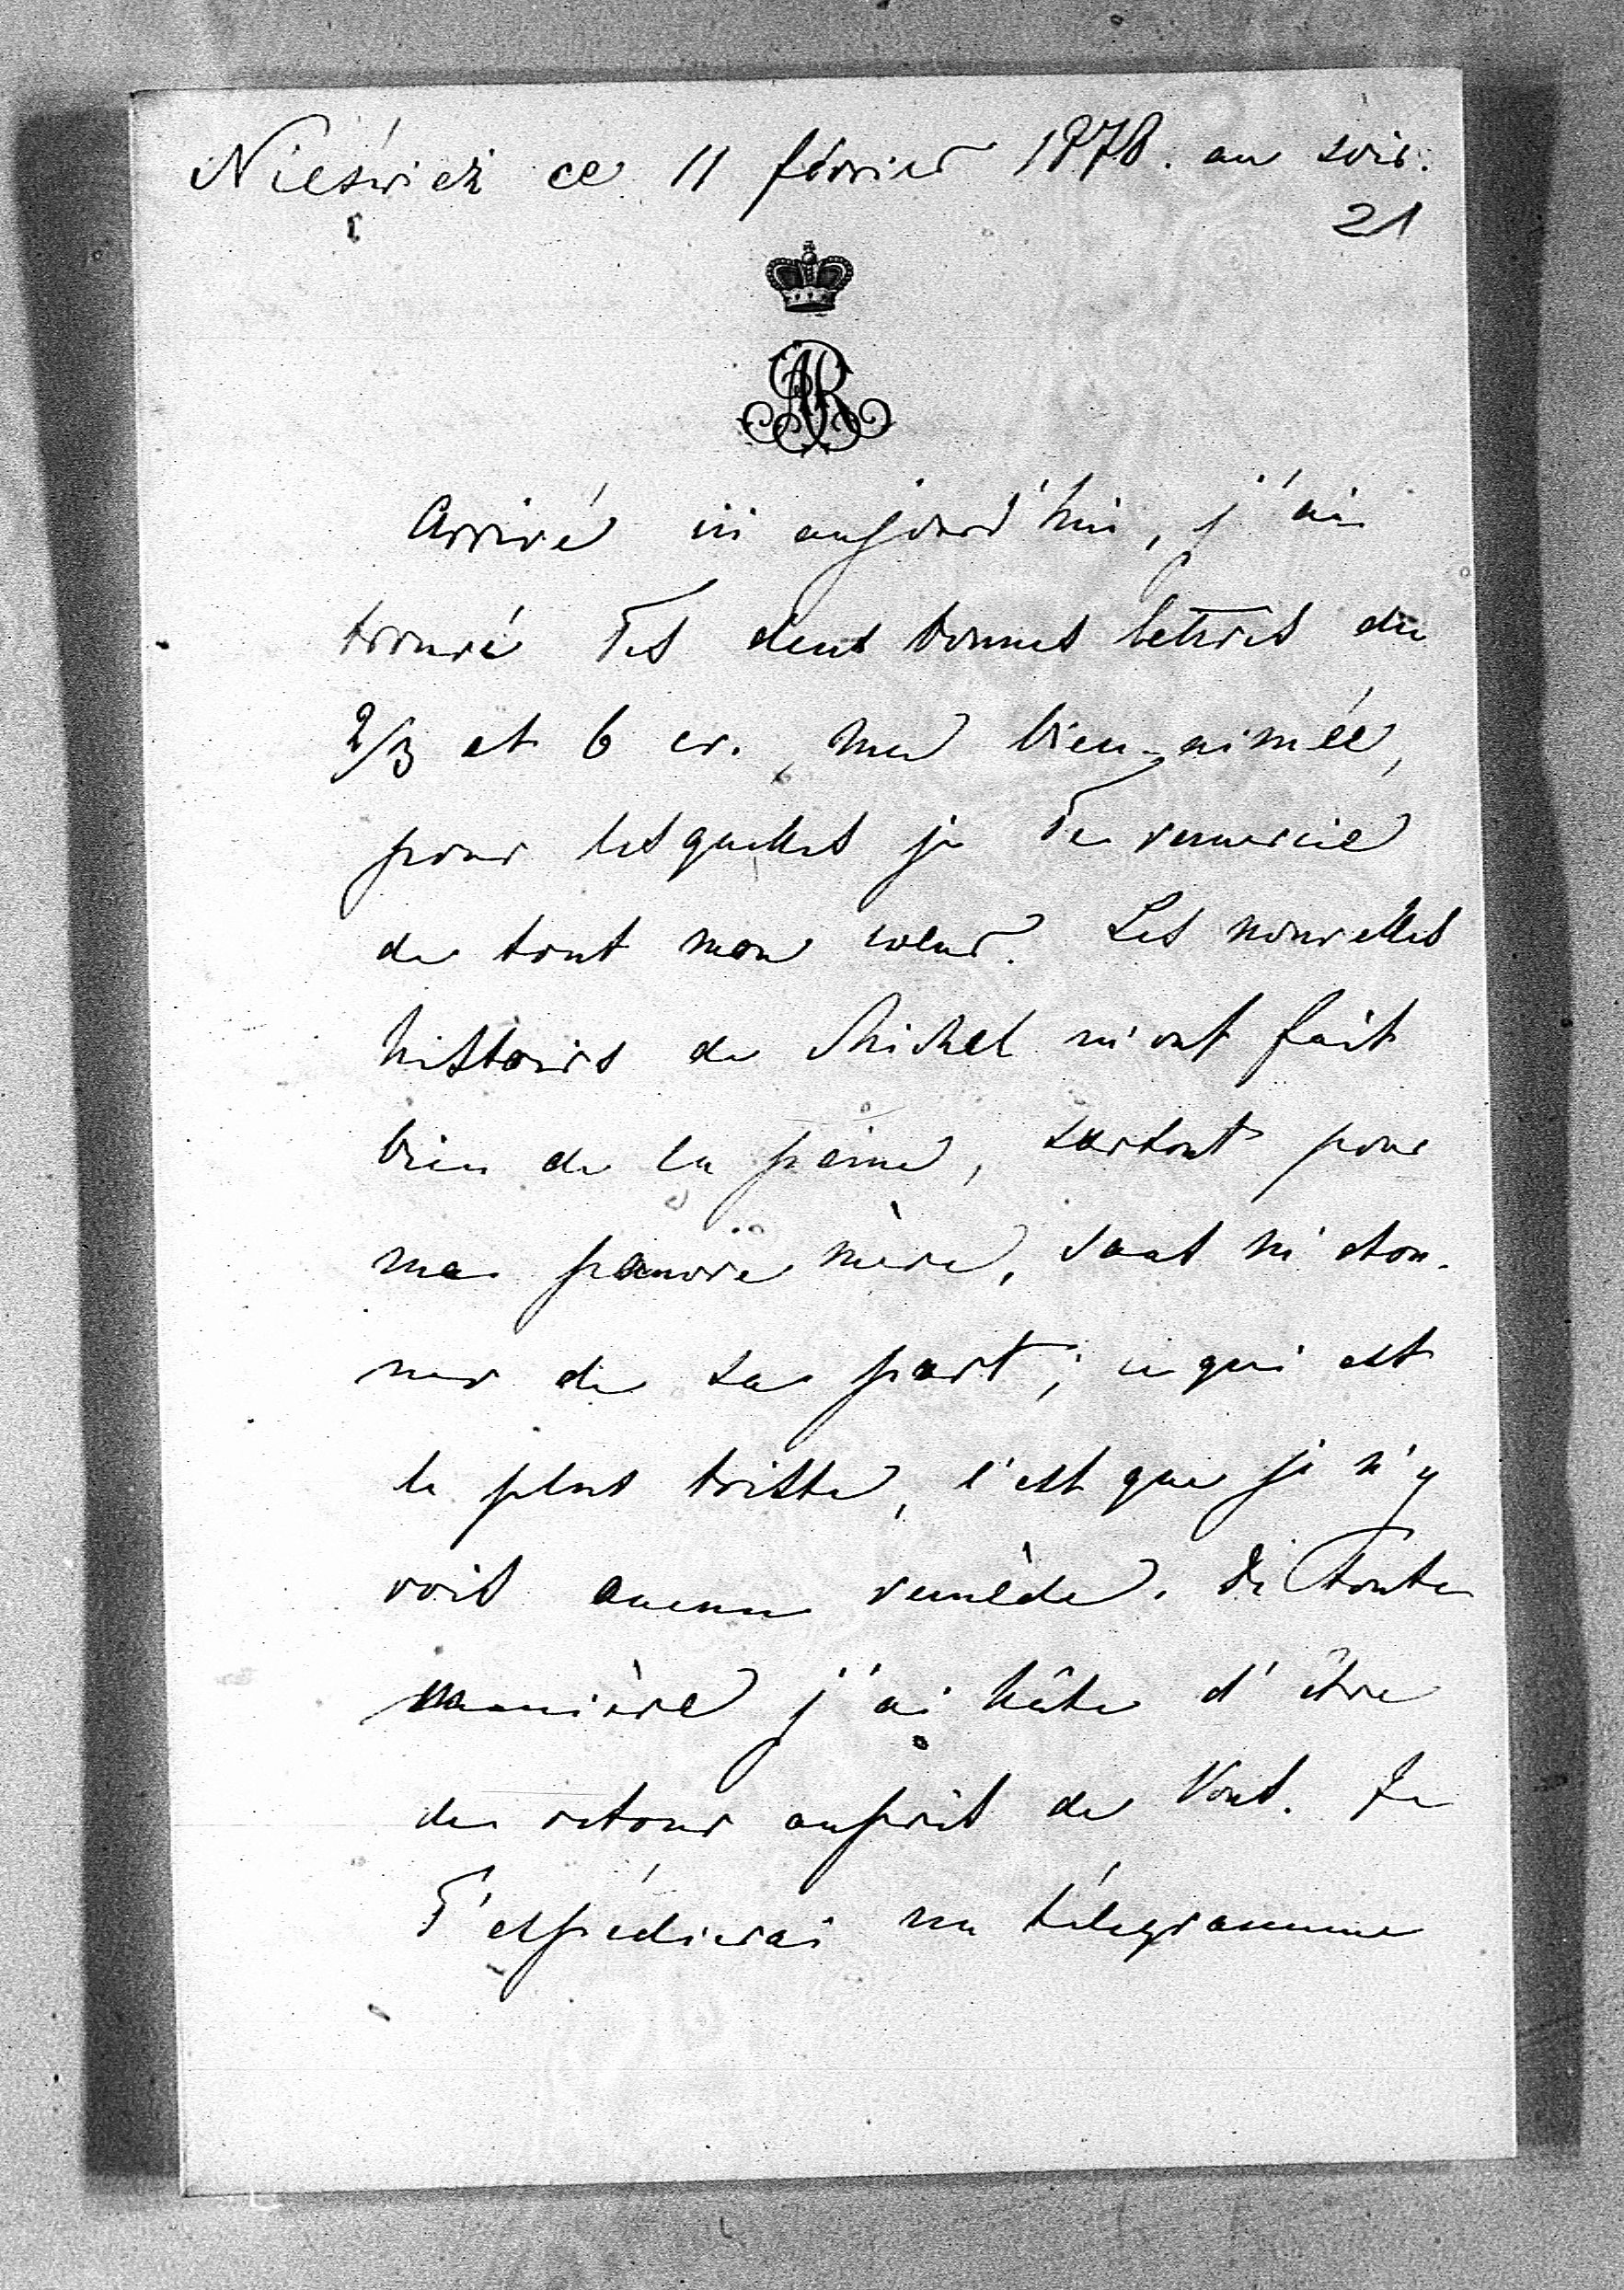 Nieśwież ce 11 février 1878. au soir.
21
AR
Arrivé ici aujourd'hui, j'ai
trouvé Tes deux bonnes lettres du
2/3 et 6 cr., ma bien-aimée,
pour lesquelles je Te remercie
de tout mon cœur. Les nouvelles
histoires de Michel m'ont fait
bien de la peine, surtout pour
ma pauvre mère, sans m'éton-
ner de sa part; ce qui est
le plus triste, c'est que je n'y
vois aucun remède. De toute
manière j'ai hâte d'être
de retour auprès de Vous. Je
T'expédierai un télégramme